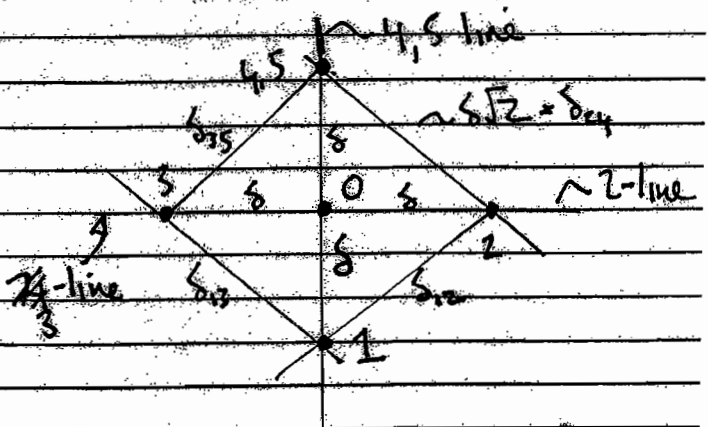 4,5 line
4,5
δ35
δ
~δ√2 = δ24
3
δ
0
δ
~2-line
2
δ
-line
3
δ13
δ12
1